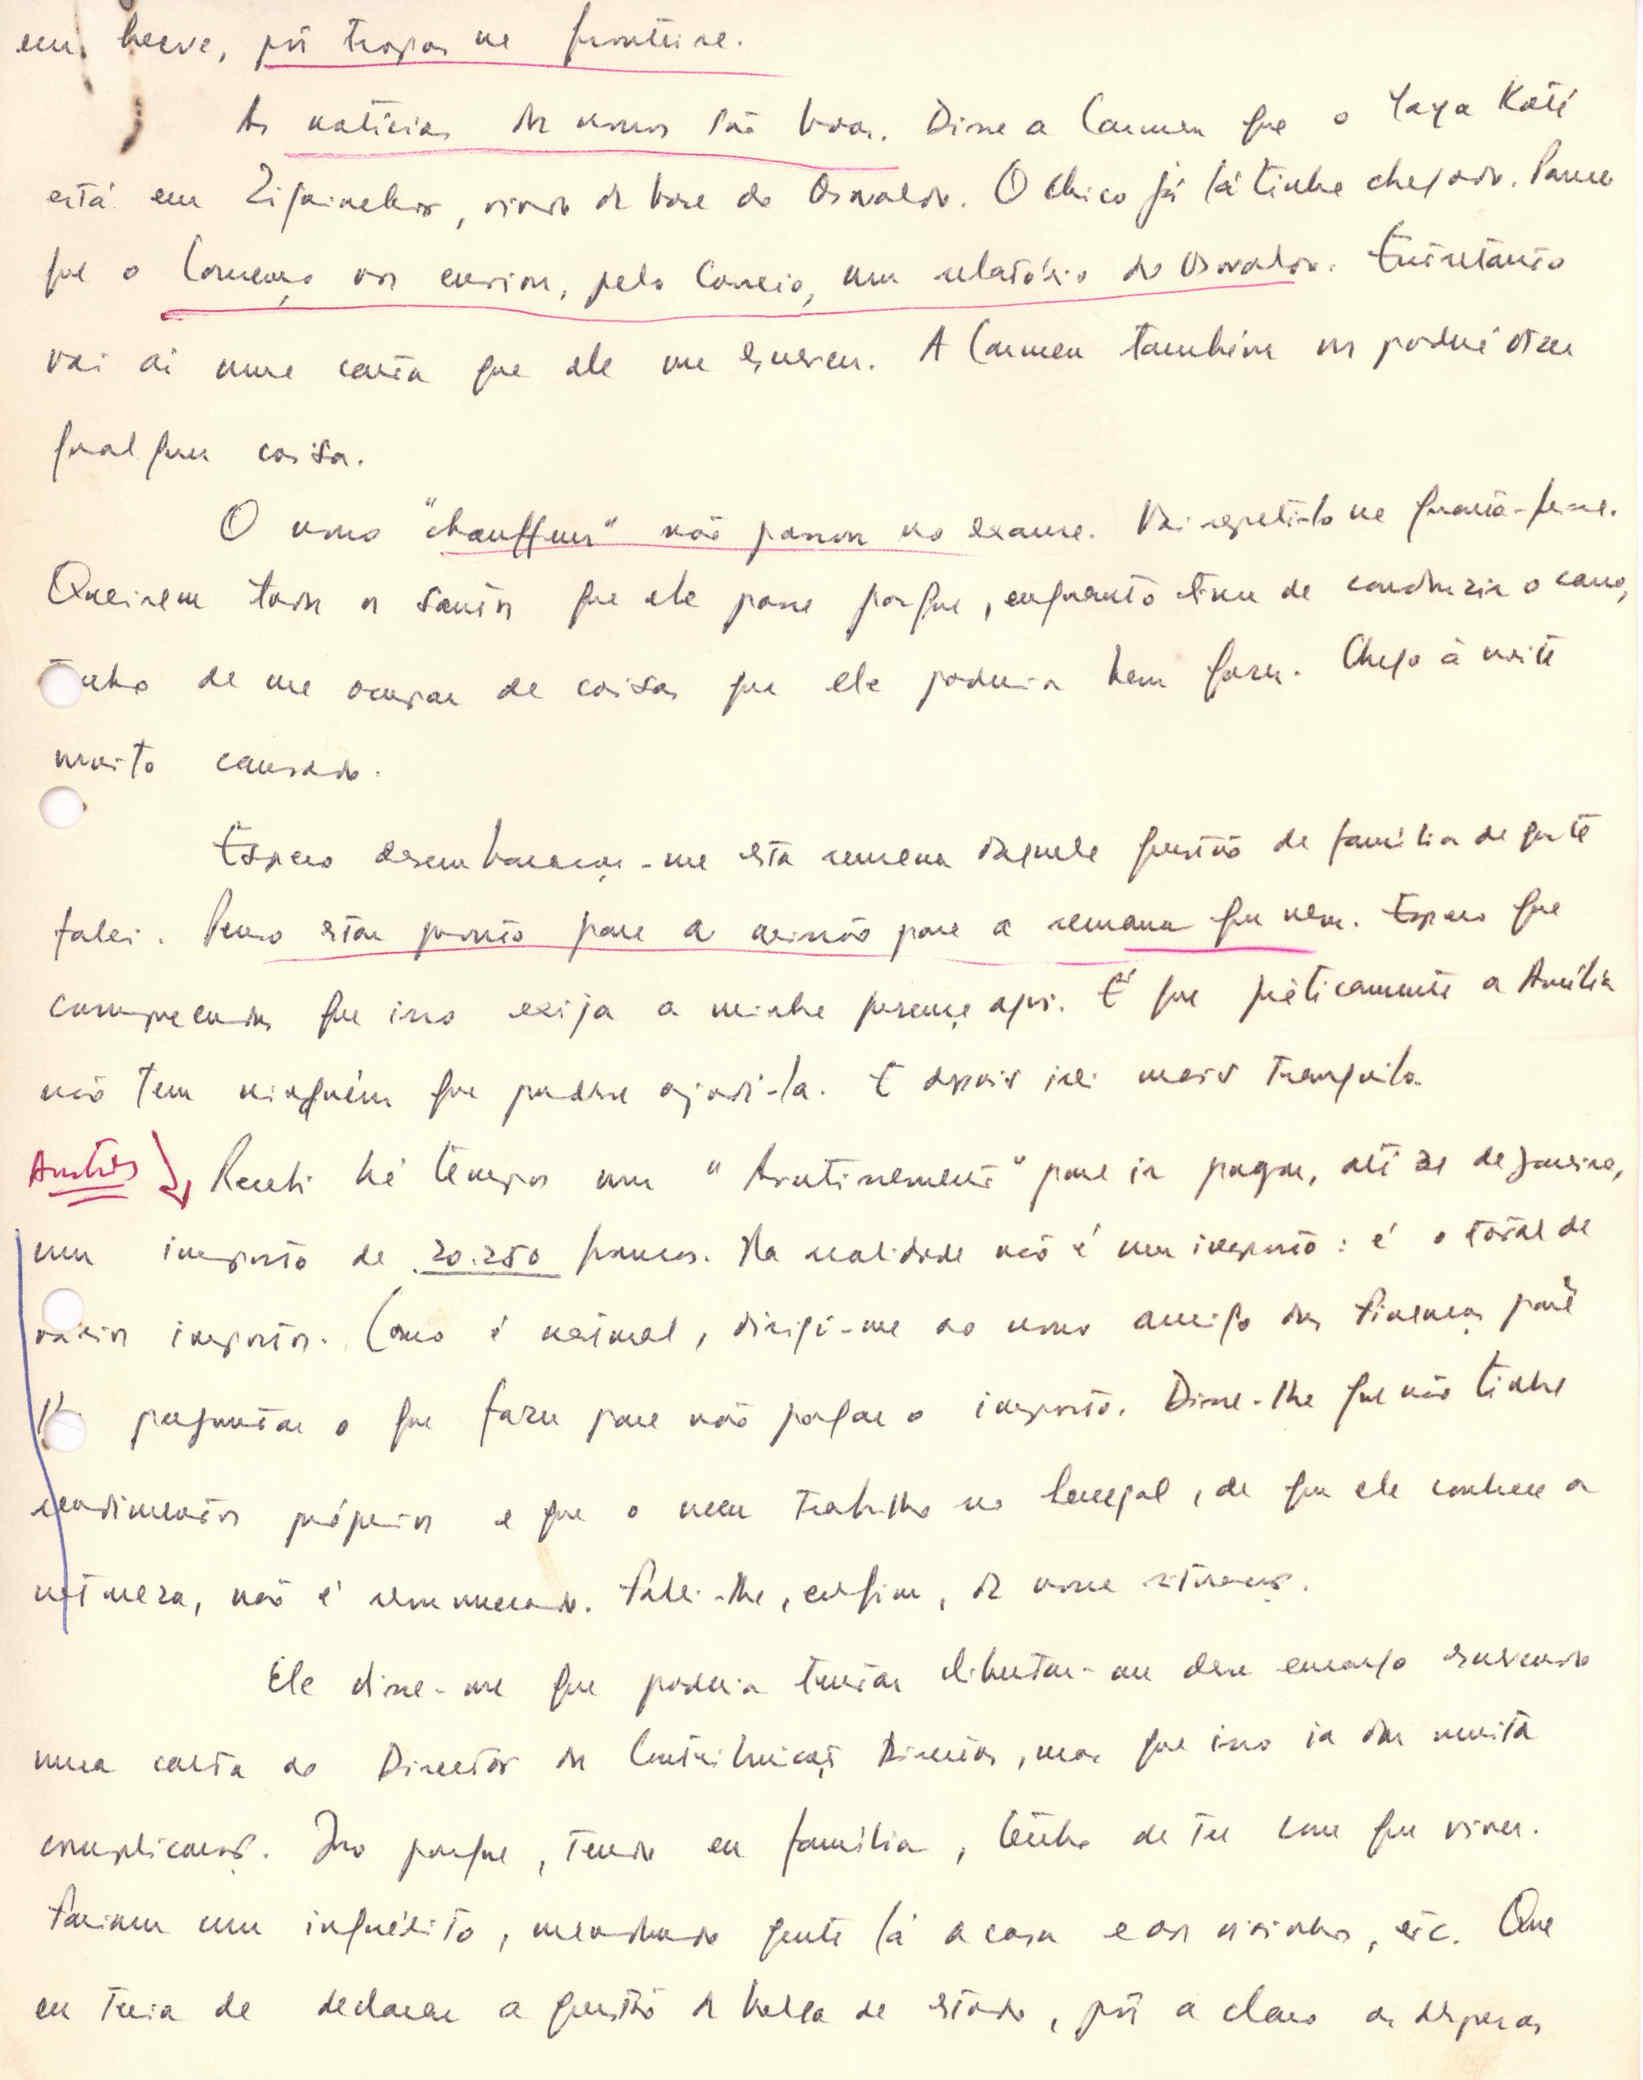 em breve, pôr tropas na fronteira.
As notícias dos nossos são boas. Disse a Carmen que o Yaya Koté
está em Ziguinchor, vindo da base do Osvaldo. O Chico já lá tinha chegado. Parece
que o Lourenço vos enviou, pelo Correio, um relatório do Osvaldo. Entretanto
vai aí uma carta que ele me escreveu. A Carmen também vos poderá dizer
qualquer coisa.
O nosso "chauffeur" não passou no exame. Vai repeti-lo na quarta-feira.
Queiram todos os santos que ele passe porque, enquanto tiver de conduzir o carro,
tenho de me ocupar de coisas que ele poderia bem fazer. Chego à noite
muito cansado.
Espero desembaraçar-me esta semana daquela questão de família de que te
falei. Penso estar pronto para a missão para a semana que vem. Espero que
compreendas que isso exija a minha presença aqui. É que pràticamente a Amélia
não tem ninguém que pudesse ajudá-la. E depois irei mais tranquilo.
Recebi há tempos um "Avertissement" para ir pagar, até 31 de Janeiro,
um imposto de 20.250 francos. Na realidade não é um imposto: é o total de
vários impostos. Como é natural, dirigi-me ao nosso amigo das Finanças para
lhe perguntar o que fazer para não pagar o imposto. Disse-lhe que não tinha
rendimentos próprios e que o meu trabalho no Senegal, de que ele conhece a
natureza, não é remunerado. Falei-lhe, enfim, da nossa situação.
Ele disse-me que poderia tentar libertar-me desse encargo escrevendo
uma carta ao Director das Contribuições Directas, mas que isso ia dar muita
complicação. Isso porque, tendo eu família, tenho de ter com que viver.
Fariam um inquérito, mandando gente lá a casa e aos vizinhos, etc. Que
eu teria de declarar a questão da bolsa de estudo, pôr a claro as despesas